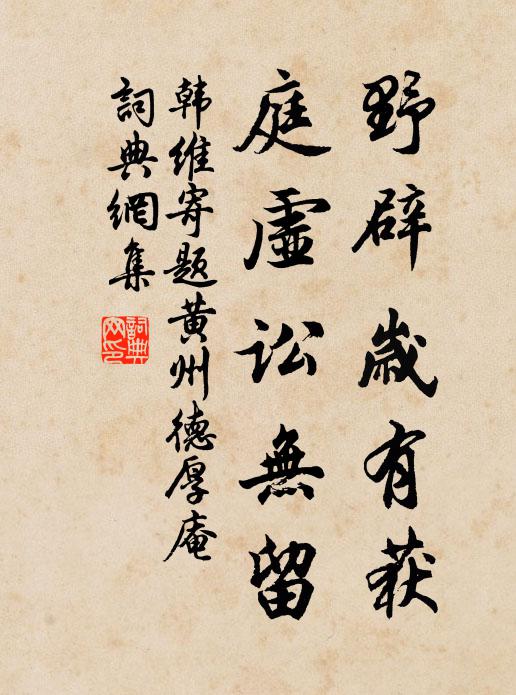 野辟歲有获
庭虛訟無留
韩維寄題黄州德厚庵
詞典網集
詞典網印